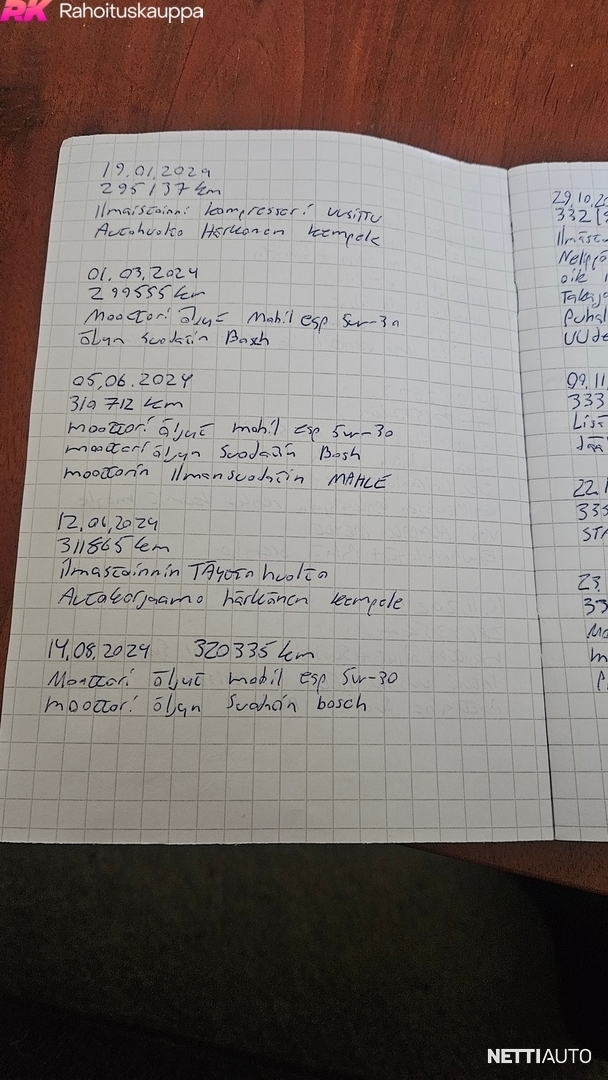 RK Rahoituskauppa
19.01.2024
295137 km
Ilmastoinni kompressori uusittu
Autohuolto Härkönen kempele
01.03.2024
299555 km
Moottori öljyt Mobil esp 5w-30
öljyn Suodatin Bosh
05.06.2024
310712 km
moottori öljyt mobil esp 5w-30
moottori öljyn Suodatin Bosh
moottorin Ilmansuodatin MAHLE
12.06.2024
311865 km
ilmastoinnin TÄyttö huolto
Autokorjaamo härkönen kempele
14.08.2024 320335 km
Moottori öljyt mobil esp 5w-30
moottori öljyn Suodatin bosch
29.10.20
332
Ilmast
oik
Takaj
Puhal
UUde
09.11
333
22.1
335
STA
23.
33
Mo
m
NETTIAUTO